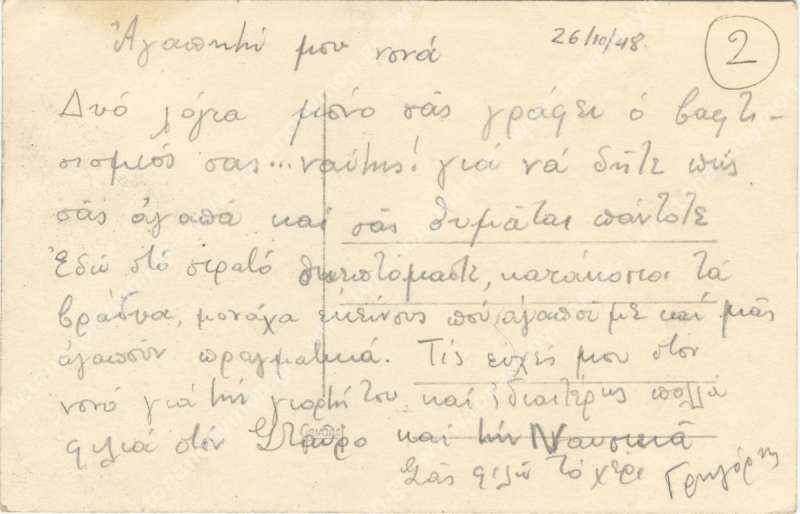 Ἀγαπητή μου νονά
26/10/48
2
Δυό λόγια μονο σᾶς γράφει ὁ βαφτι-
σιμιός σας... ναύτης! γιά νά δῆτε πώς
σᾶς ἀγαπᾶ και σᾶς θυμᾶται πάντοτε
Ἐδῶ στό στρατό σκεπτομαστε, κατάκοποι τά
βράδυα, μονάχα ἐκείνους πού ἀγαποῦμε και μᾶς
ἀγαποῦν πραγματικά. Τίς εὐχές μου στον
νονό γιά τήν γιορτή του καί ἰδιαιτέρως πολλά
φιλιά στόν Σταῦρο και τήν Ναυσικᾶ
Σᾶς φιλῶ τό χέρι Γρηγόρης